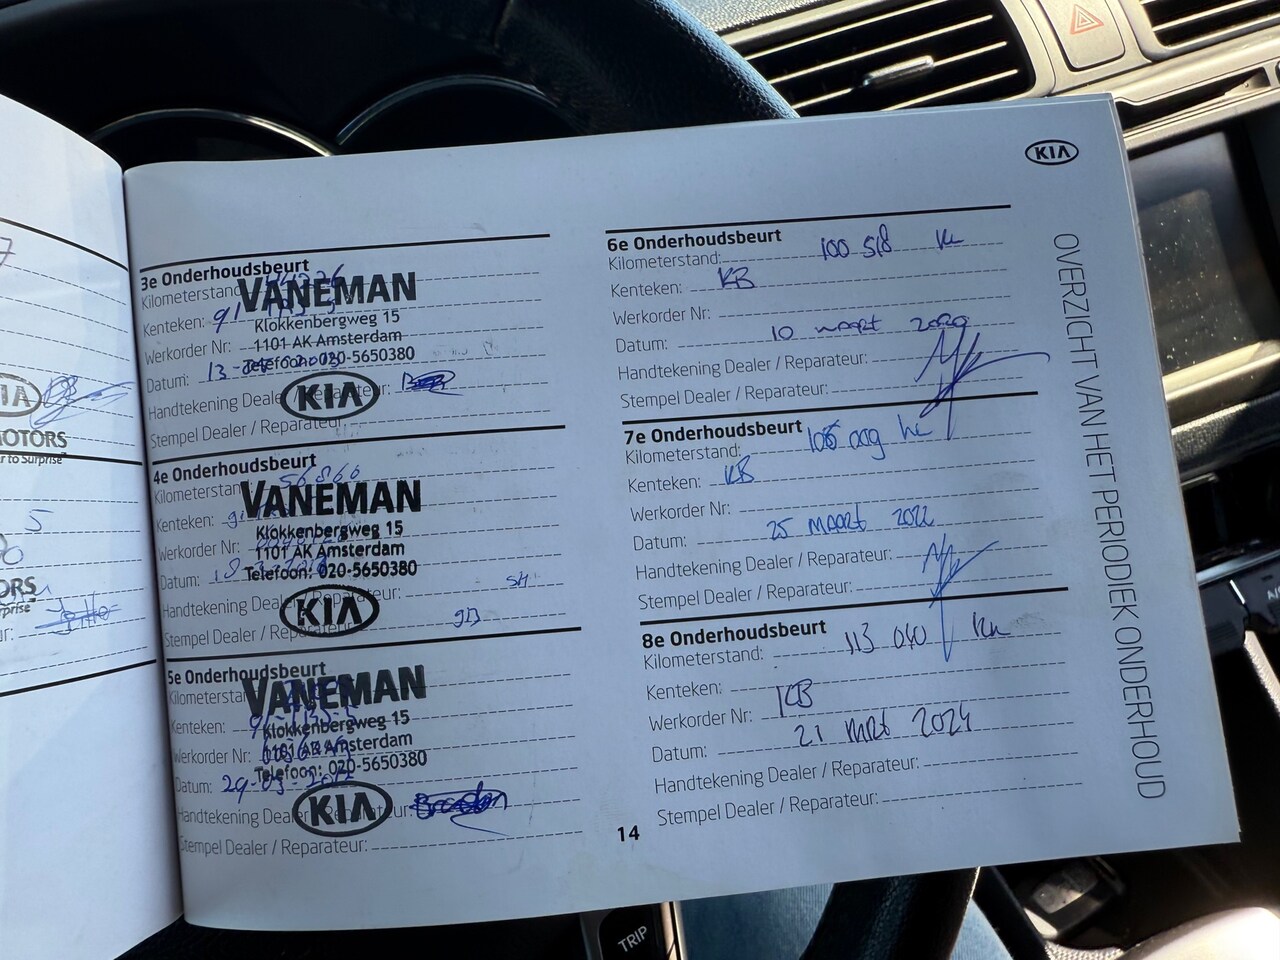 KIA
OVERZICHT VAN HET PERIODIEK ONDERHOUD
7
5
MOTORS
3e Onderhoudsbeurt
Kilometerstand
VANEMAN
Kenteken: 91
Klokkenbergweg 15
Werkorder Nr:
1101 AK Amsterdam
Datum: 13-
Telefoon: 020-5650380
Handtekening Dealer / Reparateur:
KIA
Stempel Dealer / Reparateur:
4e Onderhoudsbeurt
Kilometerstand 56860
VANEMAN
Kenteken: 91
Klokkenbergweg 15
Werkorder Nr:
1101 AK Amsterdam
Datum:
Telefoon: 020-5650380
Handtekening Dealer
KIA
Stempel Dealer / Reparateur:
5e Onderhoudsbeurt
Kilometerstand
VANEMAN
Kenteken:
Klokkenbergweg 15
Werkorder Nr:
1101 AK Amsterdam
Telefoon: 020-5650380
Datum: 29-03-
Handtekening Dealer
KIA
Stempel Dealer / Reparateur:
6e Onderhoudsbeurt
Kilometerstand: 100 518 km
Kenteken: KB
Werkorder Nr:
Datum: 10 maart 2020
Handtekening Dealer / Reparateur:
Stempel Dealer / Reparateur:
7e Onderhoudsbeurt
Kilometerstand: 106 009 km
Kenteken: KB
Werkorder Nr:
Datum: 25 maart 2022
Handtekening Dealer / Reparateur:
Stempel Dealer / Reparateur:
8e Onderhoudsbeurt
Kilometerstand: 113 040 km
Kenteken:
Werkorder Nr: KB
Datum: 21 mrt 2024
Handtekening Dealer / Reparateur:
Stempel Dealer / Reparateur:
14
TRIP